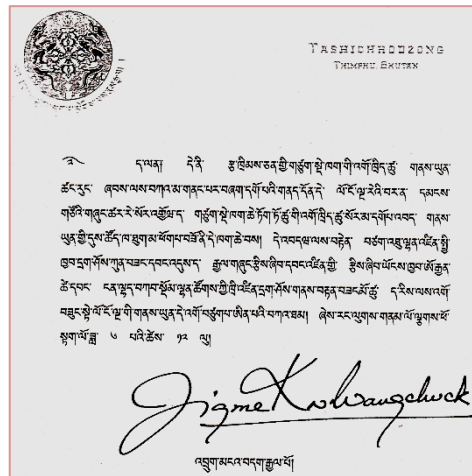 TASHICHHODZONG
THIMPHU, BHUTAN
༄། ད་ལན། དེ་ནི་ རྩ་ཁྲིམས་ཅན་གྱི་གཙུག་སྡེ་ཁག་གི་འགོ་ཁྲིད་ཚུ་ གནས་ཡུན་
ཚང་རུང་ ཞབས་ལས་བཀའ་མ་གནང་པར་བཞག་དགོ་པའི་གནད་དོན་དེ་ ལོ་ངོ་ལྔ་རེའི་བར་ན་ དམངས་
གཙོའི་གཞུང་ཚར་རེ་སོར་འགྱོཝ་ད་ གཙུག་སྡེ་ཁག་ཆེ་ཏོག་ཏོ་ཚུ་གི་འགོ་ཁྲིད་ཚུ་སོར་མ་དགོཔ་འབད་ གནས་
ཡུན་གྱི་དུས་ཚོད་ཁ་ཐུག་མ་ཕོགཔ་བཟོ་ནི་དེ་ཁག་ཆེ་བས། དེ་འབདཝ་ལས་བརྟེན་ བཙག་འཐུ་ལྷན་འཛིན་སྤྱི་
ཁྱབ་དྲག་ཤོས་ཀུན་བཟང་དབང་འདུས་ད་ རྒྱལ་གཞུང་རྩིས་ཞིབ་དབང་འཛིན་གྱི་ རྩིས་ཞིབ་ཡོངས་ཁྱབ་ཨོ་རྒྱན་
ཚེ་དབང་ ངན་ལྷད་བཀག་སྡོམ་ལྷན་ཚོགས་ཀྱི་ཁྲི་འཛིན་དྲག་ཤོས་གནས་བརྟན་བཟངམོ་ཚུ་ ད་རིས་ལས་འགོ་
བཟུང་སྟེ་ལོ་ངོ་ལྔ་གི་གནས་ཡུན་དེ་འགོ་བཙུགཔ་ཨིན་པའི་བཀའ་ཐམ། ཞེས་རང་ལུགས་གནམ་ལོ་ལྕགས་ཕོ་
སྟག་ལོ་ཟླ་ ༦ པའི་ཚེས་ ༡༢ ལུ།
Jigme K Wangchuck
འབྲུག་མངའ་བདག་རྒྱལ་པོ།